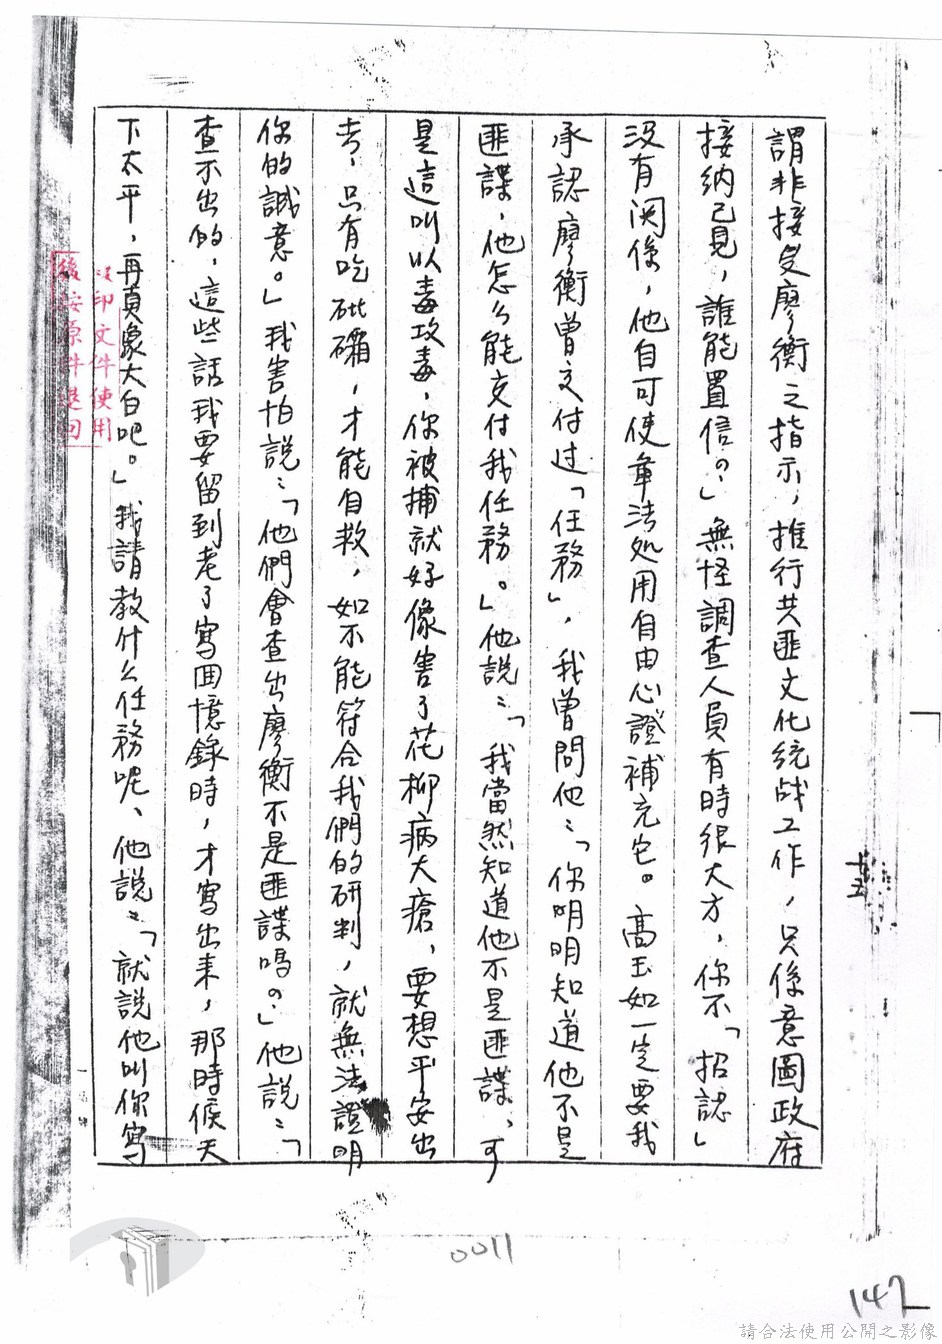 謂非接受廖衡之指示，推行共匪文化統战工作，只係意圖政府
接纳己見，誰能置信。」無怪調查人員有時很大方，你不「招認」
没有関係，他自可使軍法処用自由心證補充它。高玉如一定要我
承認廖衡曾交付过「任務」，我曾問他：「你明明知道他不是
匪諜，他怎么能交付我任務。」他說：「我當然知道他不是匪諜，可
是這叫以毒攻毒，你被捕就好像害了花柳病大瘡，要想平安出
去，只有吃砒礵，才能自救，如不能符合我們的研判，就無法證明
你的誠意。」我害怕説：「他們會查出廖衡不是匪諜嗎？」他說：「
查不出的，這些話我要留到老了寫囬憶錄時，才寫出來，那時候天
下太平，再真象大白吧。」我請教什么任務呢、他說：「就說他叫你寫
十五
印文件使用
後按原件退回
0011
147
請合法使用公開之影像